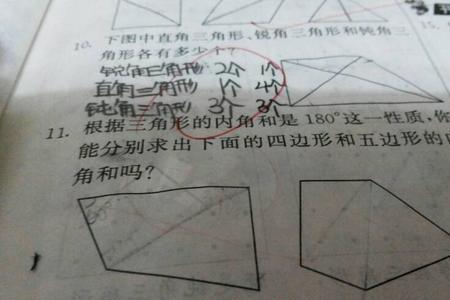 10. 下图中直角三角形、锐角三角形和钝角三
角形各有多少个?
锐角三角形 2个 1个
直角三角形 1个 4个
钝角三角形 3个 3个
11. 根据三角形的内角和是180°这一性质,你
能分别求出下面的四边形和五边形的内
角和吗?
15.